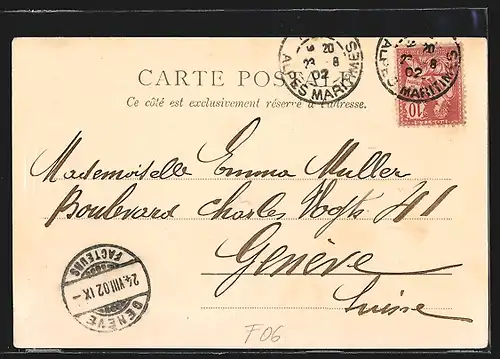 CARTE POSTALE
Ce côté est exclusivement réservé à l'adresse.
9 20
23 8
02
ALPES MARITIMES
20
23 8
02
ALPES MARITIMES
10
Mademoiselle Emma Muller
Boulevard Charles Vogts 41
Genève
Suisse
FACTEURS
24.VIII.02.IX-
GENÈVE
F06